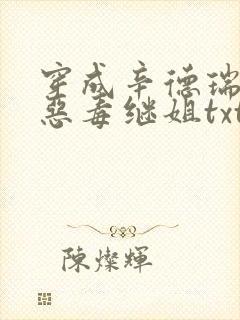 穿成辛德瑞
惡毒继姐txt
陳燦輝